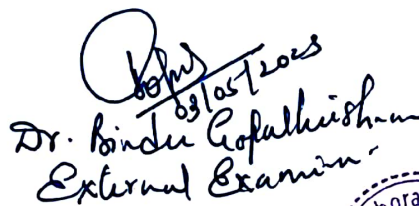 03/05/2023
Dr. Bindu Gopalkrishnan
External Examiner
bora